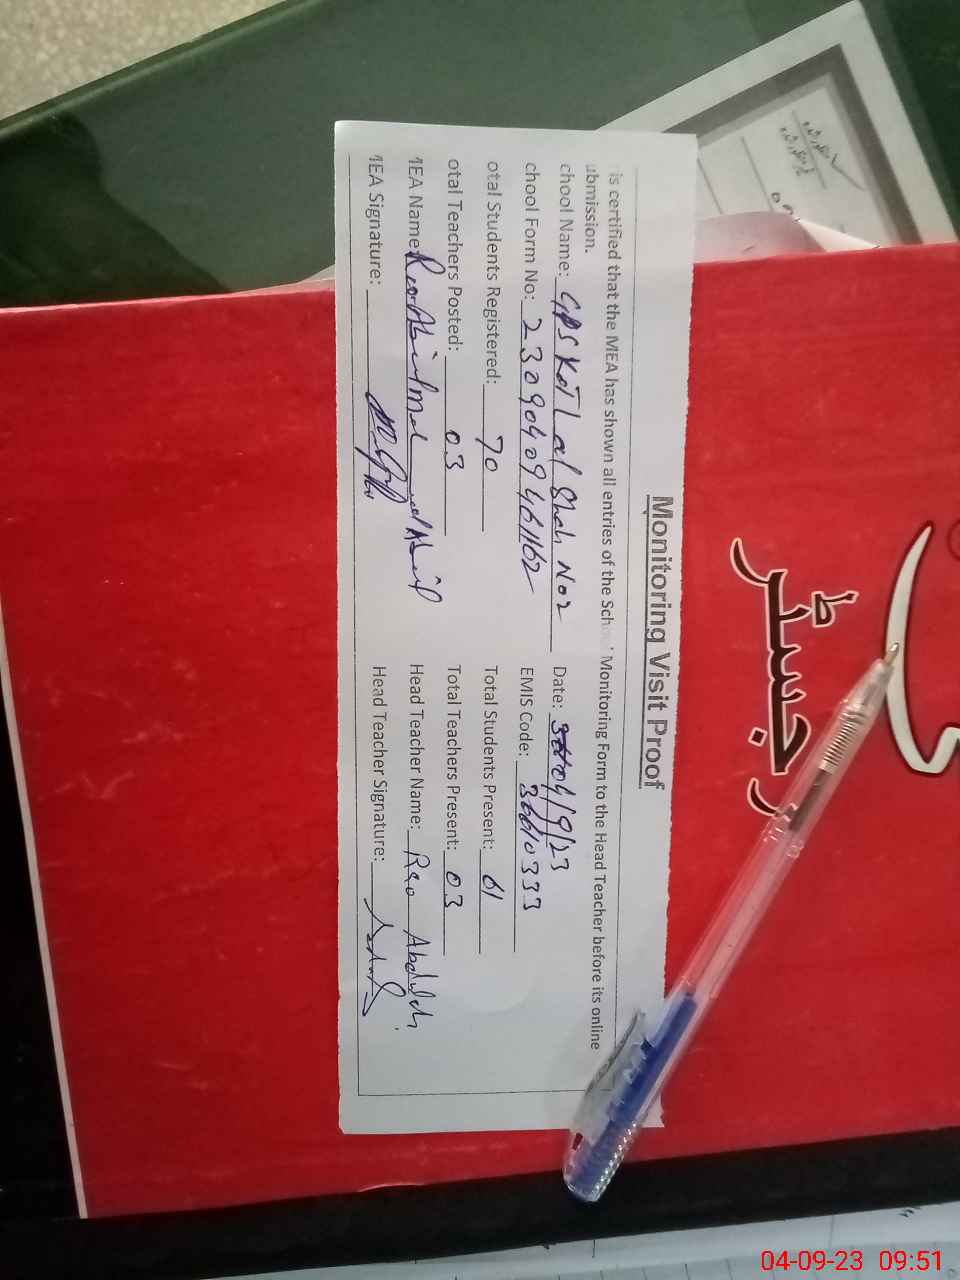 Monitoring Visit Proof
is certified that the MEA has shown all entries of the School Monitoring Form to the Head Teacher before its online
ubmission.
chool Name: GPS Kot Lal Shah No2 Date: 04/9/23
chool Form No: 23090409461162 EMIS Code: 36610333
otal Students Registered: 70 Total Students Present: 61
otal Teachers Posted: 03 Total Teachers Present: 03
MEA Name: Rao Head Teacher Name: Rao
MEA Signature: Head Teacher Signature:
رجسٹر
04-09-23 09:51